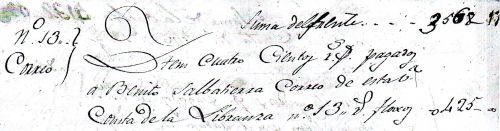 Suma del frente . . . . 3562 17
Nº 13..
Correo
Ytem Cuatro Cientos pagados
a Benito Salbatierra Correo de esta
Consta de la Libranza nº 13.. floxos 0425 - 0